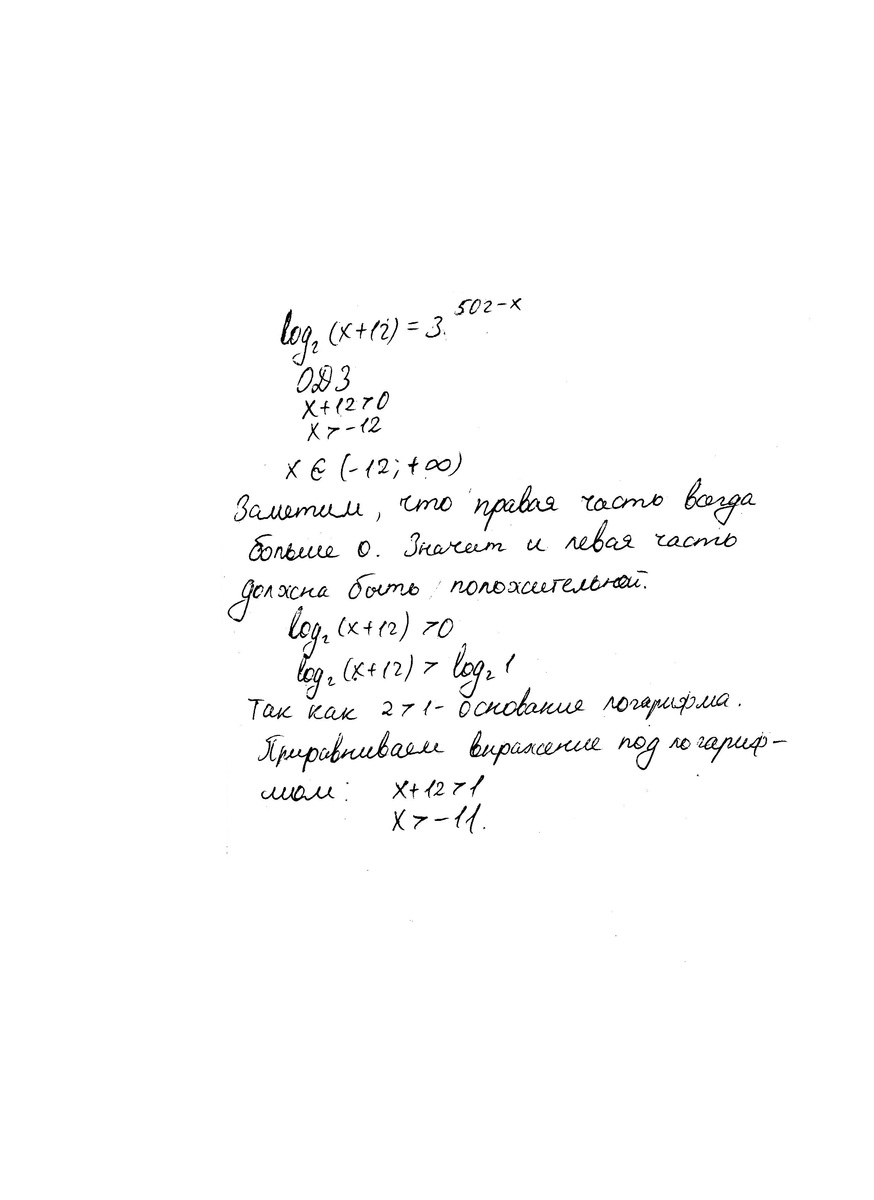 log₂(x+12) = 3^502-x
ОДЗ
x+12>0
x>-12
x ∈ (-12; +∞)
Заметим, что правая часть всегда
больше 0. Значит и левая часть
должна быть положительной.
log₂(x+12) >0
log₂(x+12) > log₂ 1
Так как 2>1 - основание логарифма.
Приравниваем выражение под логариф-
мом: x+12>1
x>-11.